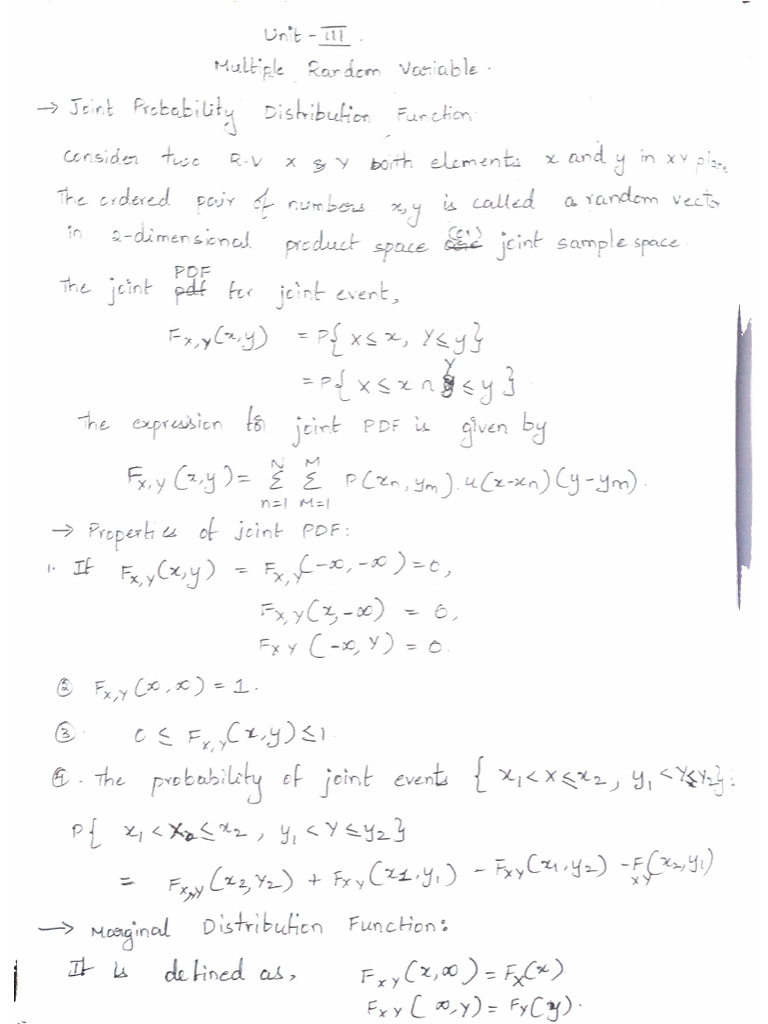 Unit - III.
Multiple Random Variable.
→ Joint Probability Distribution Function
consider two R.V X & Y both elements x and y in xy plane
The ordered pair of numbers x,y is called a random vector
in 2-dimensional product space (or) joint sample space.
The joint PDF for joint event,
F_{X,Y}(x,y) = P{X≤x, Y≤y}
= P{X≤x ∩ Y≤y}
The expression for joint PDF is given by
F_{X,Y}(x,y) = Σ_{n=1}^{N} Σ_{M=1}^{M} P(xn, ym).u(x-xn)(y-ym).
→ Properties of joint PDF:
1. If F_{X,Y}(x,y) = F_{X,Y}(-∞,-∞) = 0,
F_{X,Y}(x,-∞) = 0,
F_{XY}(-∞,Y) = 0.
② F_{X,Y}(∞,∞) = 1.
③. 0 ≤ F_{X,Y}(x,y) ≤ 1
④. The probability of joint events { x₁<X≤x₂, y₁<Y≤Y₂}:
P{ x₁<X₂≤x₂, y₁<Y≤y₂}
= F_{X,Y}(x₂,Y₂) + F_{XY}(x₁,y₁) - F_{XY}(x₁,y₂) - F_{XY}(x₂,y₁)
→ Marginal Distribution Function:
It is defined as, F_{XY}(x,∞) = F_X(x)
F_{XY}(∞,Y) = F_Y(y).